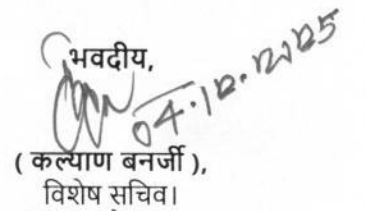 भवदीय,
04.12.2025
( कल्याण बनर्जी ),
विशेष सचिव।